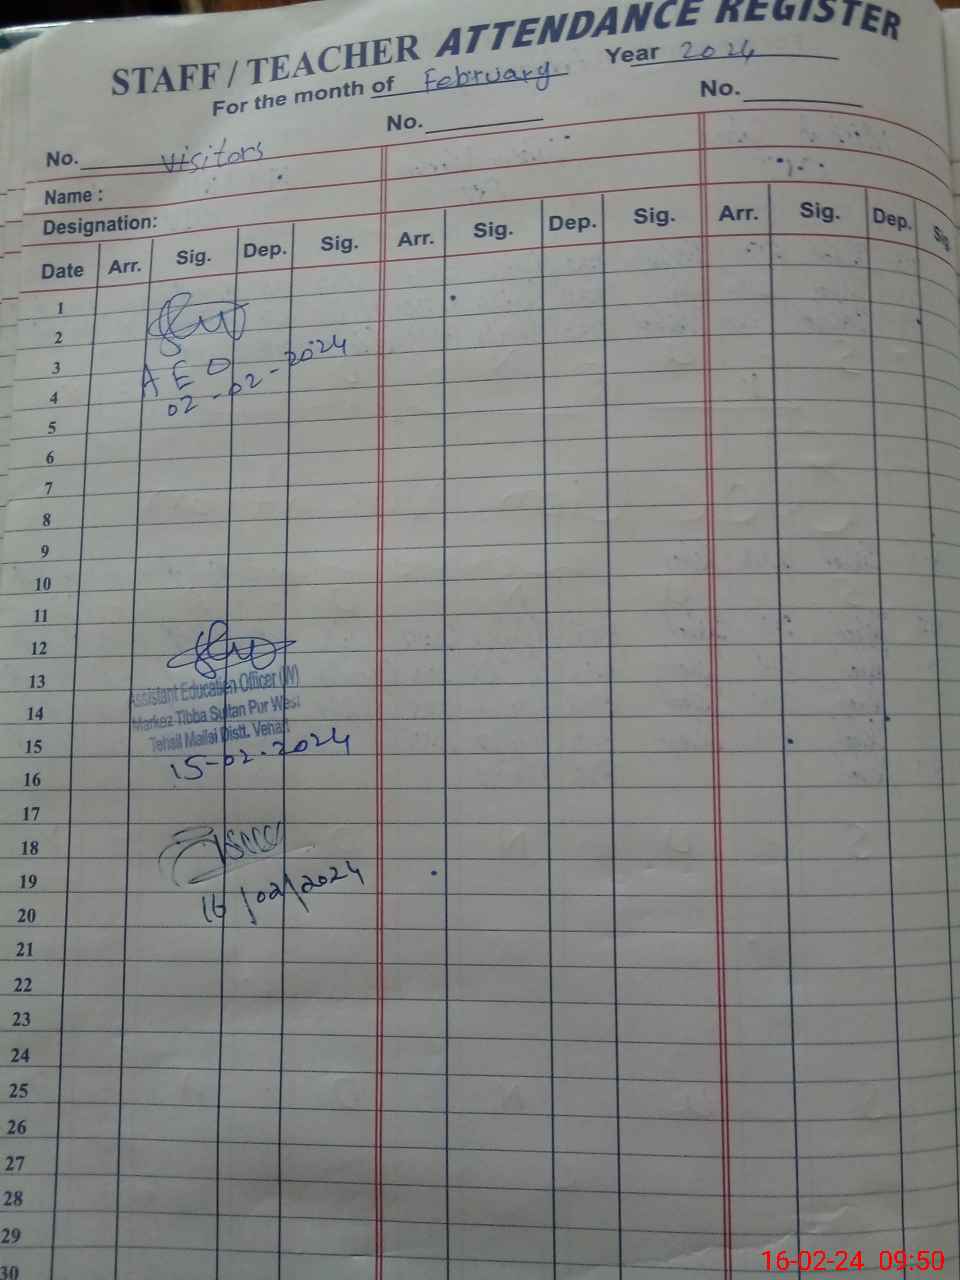 STAFF / TEACHER ATTENDANCE REGISTER
For the month of February Year 2024
No. visitors No. No.
Name :
Designation:
Date Arr. Sig. Dep. Sig. Arr. Sig. Dep. Sig. Arr. Sig. Dep. Sig.
1
2
3
A E O
4
02-02-2024
5
6
7
8
9
10
11
12
13
Assistant Education Officer (W)
14
Markez Tibba Sultan Pur West
15
Tehsil Mailsi Distt. Vehari
15-02-2024
16
17
18
19
16/02/2024
20
21
22
23
24
25
26
27
28
29
30
16-02-24 09:50